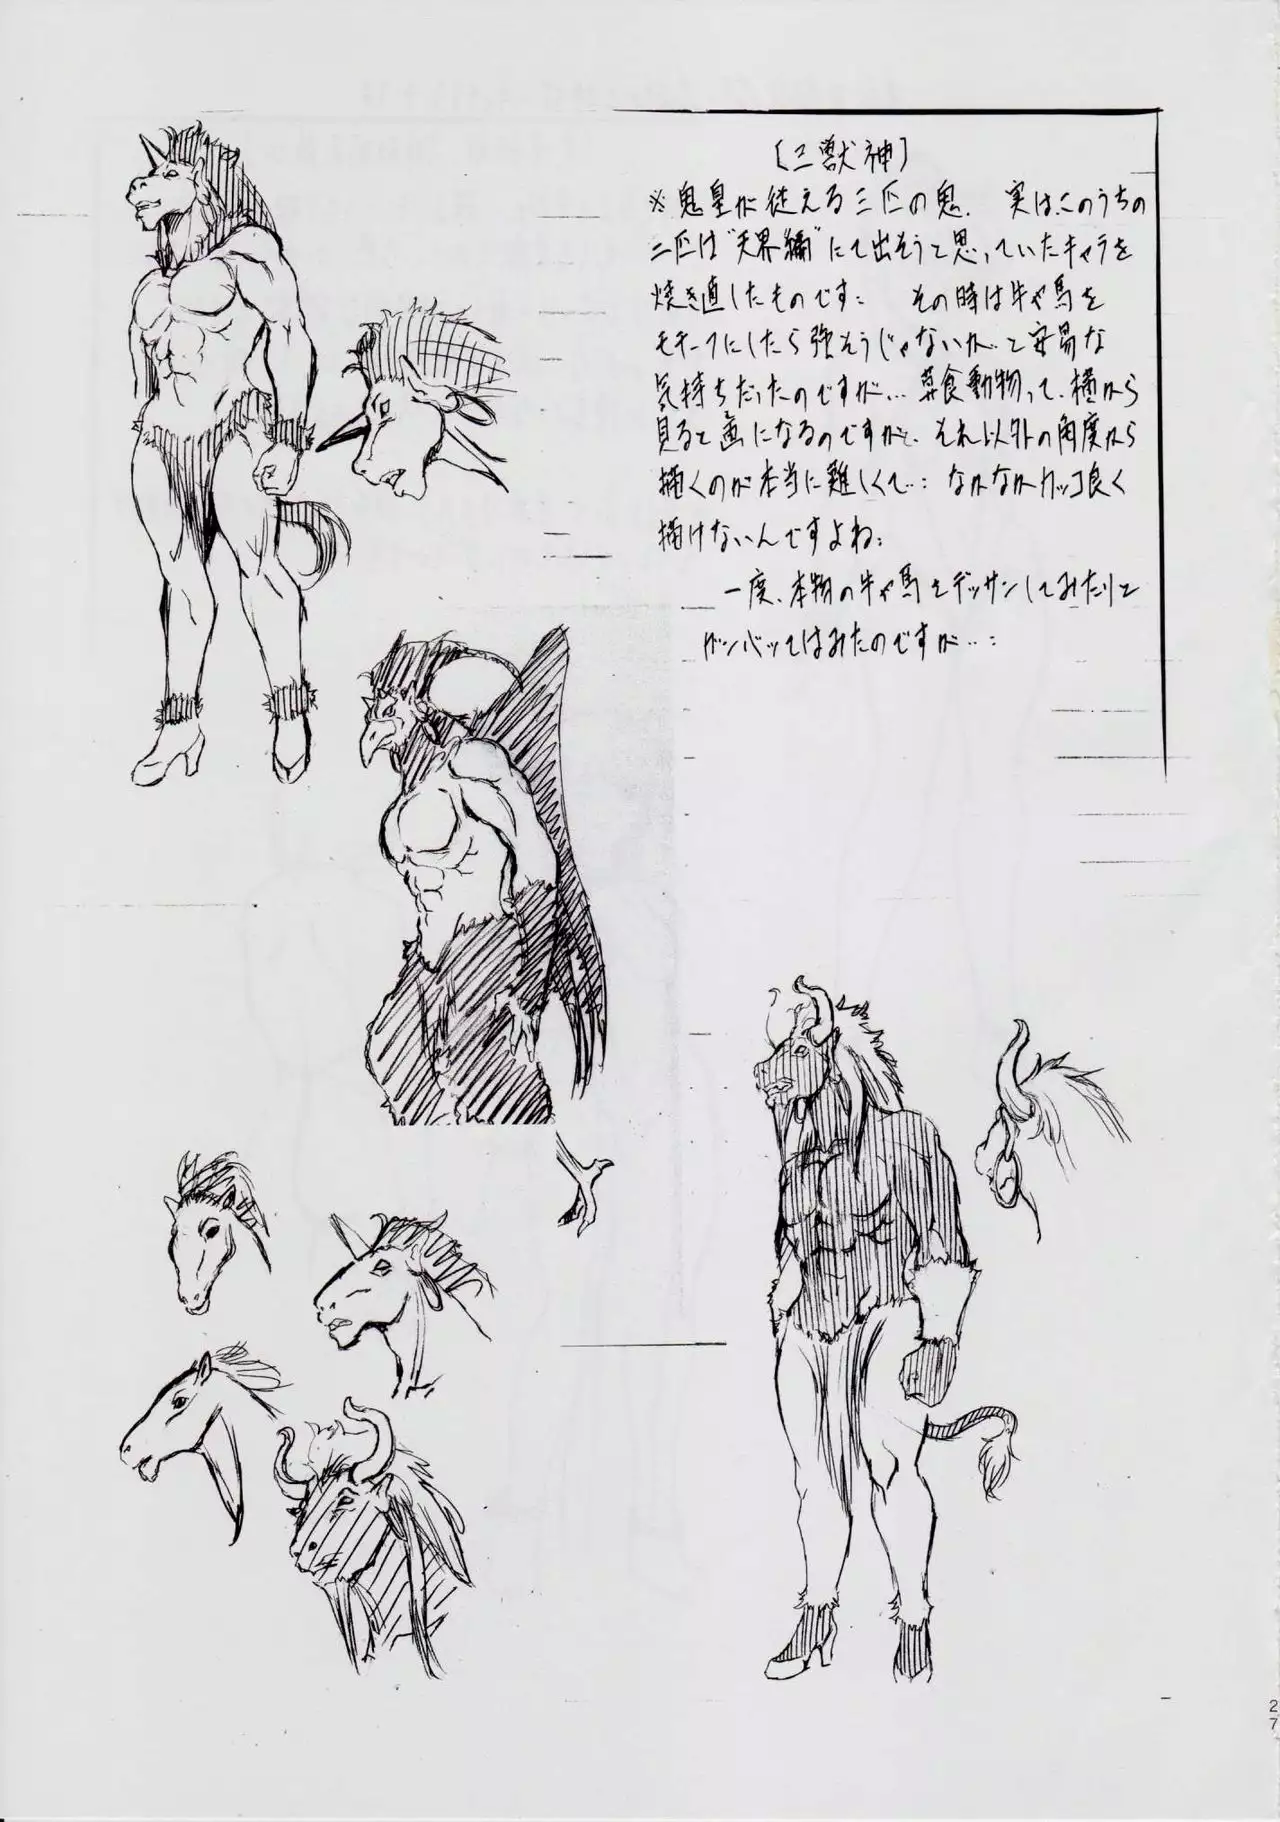 〔三獣神〕
※鬼皇が従える三匹の鬼. 実は、このうちの
二匹は"天界編"にて出そうと思っていたキャラを
焼き直したものです… その時は牛や馬を
モチーフにしたら強そうじゃないか…と安易な
気持ちだったのですが… 草食動物って、横から
見ると画になるのですがど、それ以外の角度から
描くのが本当に難しくて… なかなかカッコ良く
描けないんですよね…
一度、本物の牛や馬をデッサンしてみたりと
ガンバッてはみたのですが…
27